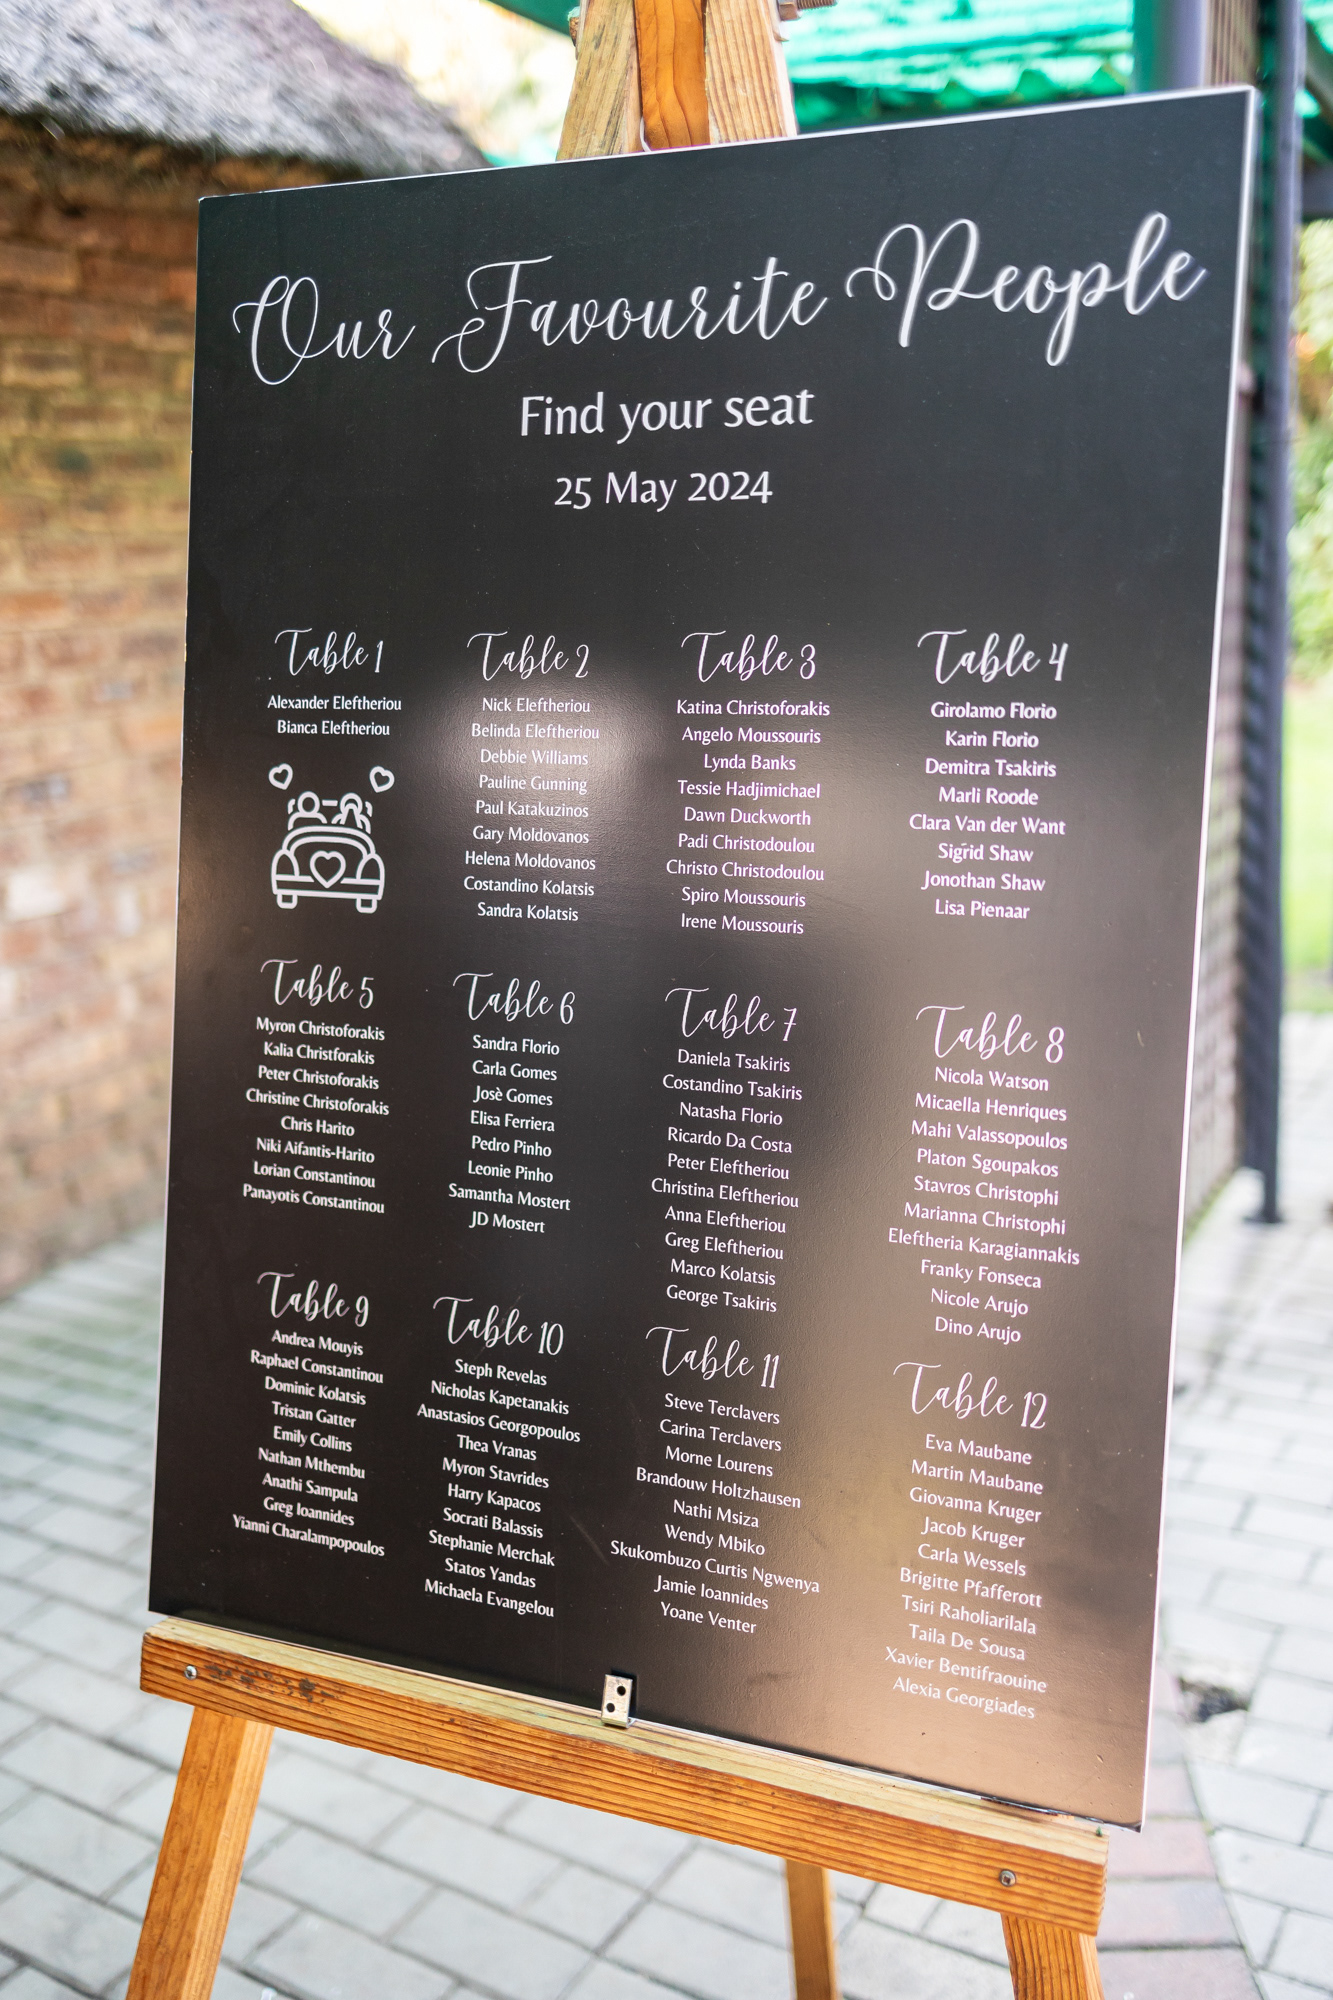 Our Favourite People
Find your seat
25 May 2024
Table 1
Alexander Eleftheriou
Bianca Eleftheriou
Table 2
Nick Eleftheriou
Belinda Eleftheriou
Debbie Williams
Pauline Gunning
Paul Katakuzinos
Gary Moldovanos
Helena Moldovanos
Costandino Kolatsis
Sandra Kolatsis
Table 3
Katina Christoforakis
Angelo Moussouris
Lynda Banks
Tessie Hadjimichael
Dawn Duckworth
Padi Christodoulou
Christo Christodoulou
Spiro Moussouris
Irene Moussouris
Table 4
Girolamo Florio
Karin Florio
Demitra Tsakiris
Marli Roode
Clara Van der Want
Sigrid Shaw
Jonothan Shaw
Lisa Pienaar
Table 5
Myron Christoforakis
Kalia Christforakis
Peter Christoforakis
Christine Christoforakis
Chris Harito
Niki Aifantis-Harito
Lorian Constantinou
Panayotis Constantinou
Table 6
Sandra Florio
Carla Gomes
Josè Gomes
Elisa Ferriera
Pedro Pinho
Leonie Pinho
Samantha Mostert
JD Mostert
Table 7
Daniela Tsakiris
Costandino Tsakiris
Natasha Florio
Ricardo Da Costa
Peter Eleftheriou
Christina Eleftheriou
Anna Eleftheriou
Greg Eleftheriou
Marco Kolatsis
George Tsakiris
Table 8
Nicola Watson
Micaella Henriques
Mahi Valassopoulos
Platon Sgoupakos
Stavros Christophi
Marianna Christophi
Eleftheria Karagiannakis
Franky Fonseca
Nicole Arujo
Dino Arujo
Table 9
Andrea Mouyis
Raphael Constantinou
Dominic Kolatsis
Tristan Gatter
Emily Collins
Nathan Mthembu
Anathi Sampula
Greg Ioannides
Yianni Charalampopoulos
Table 10
Steph Revelas
Nicholas Kapetanakis
Anastasios Georgopoulos
Thea Vranas
Myron Stavrides
Harry Kapacos
Socrati Balassis
Stephanie Merchak
Statos Yandas
Michaela Evangelou
Table 11
Steve Terclavers
Carina Terclavers
Morne Lourens
Brandouw Holtzhausen
Nathi Msiza
Wendy Mbiko
Skukombuzo Curtis Ngwenya
Jamie Ioannides
Yoane Venter
Table 12
Eva Maubane
Martin Maubane
Giovanna Kruger
Jacob Kruger
Carla Wessels
Brigitte Pfafferott
Tsiri Raholiarilala
Taila De Sousa
Xavier Bentifraouine
Alexia Georgiades